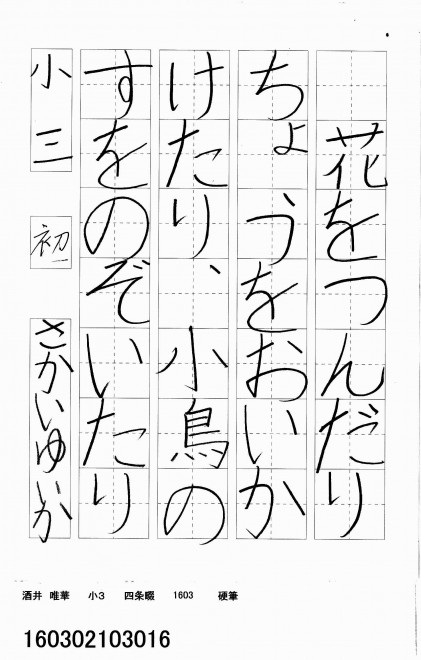 花をつんだり
ちょうをおいか
けたり、小鳥の
すをのぞいたり
小三 初一 さかいゆいか
酒井 唯華 小3 四条畷 1603 硬筆
160302103016